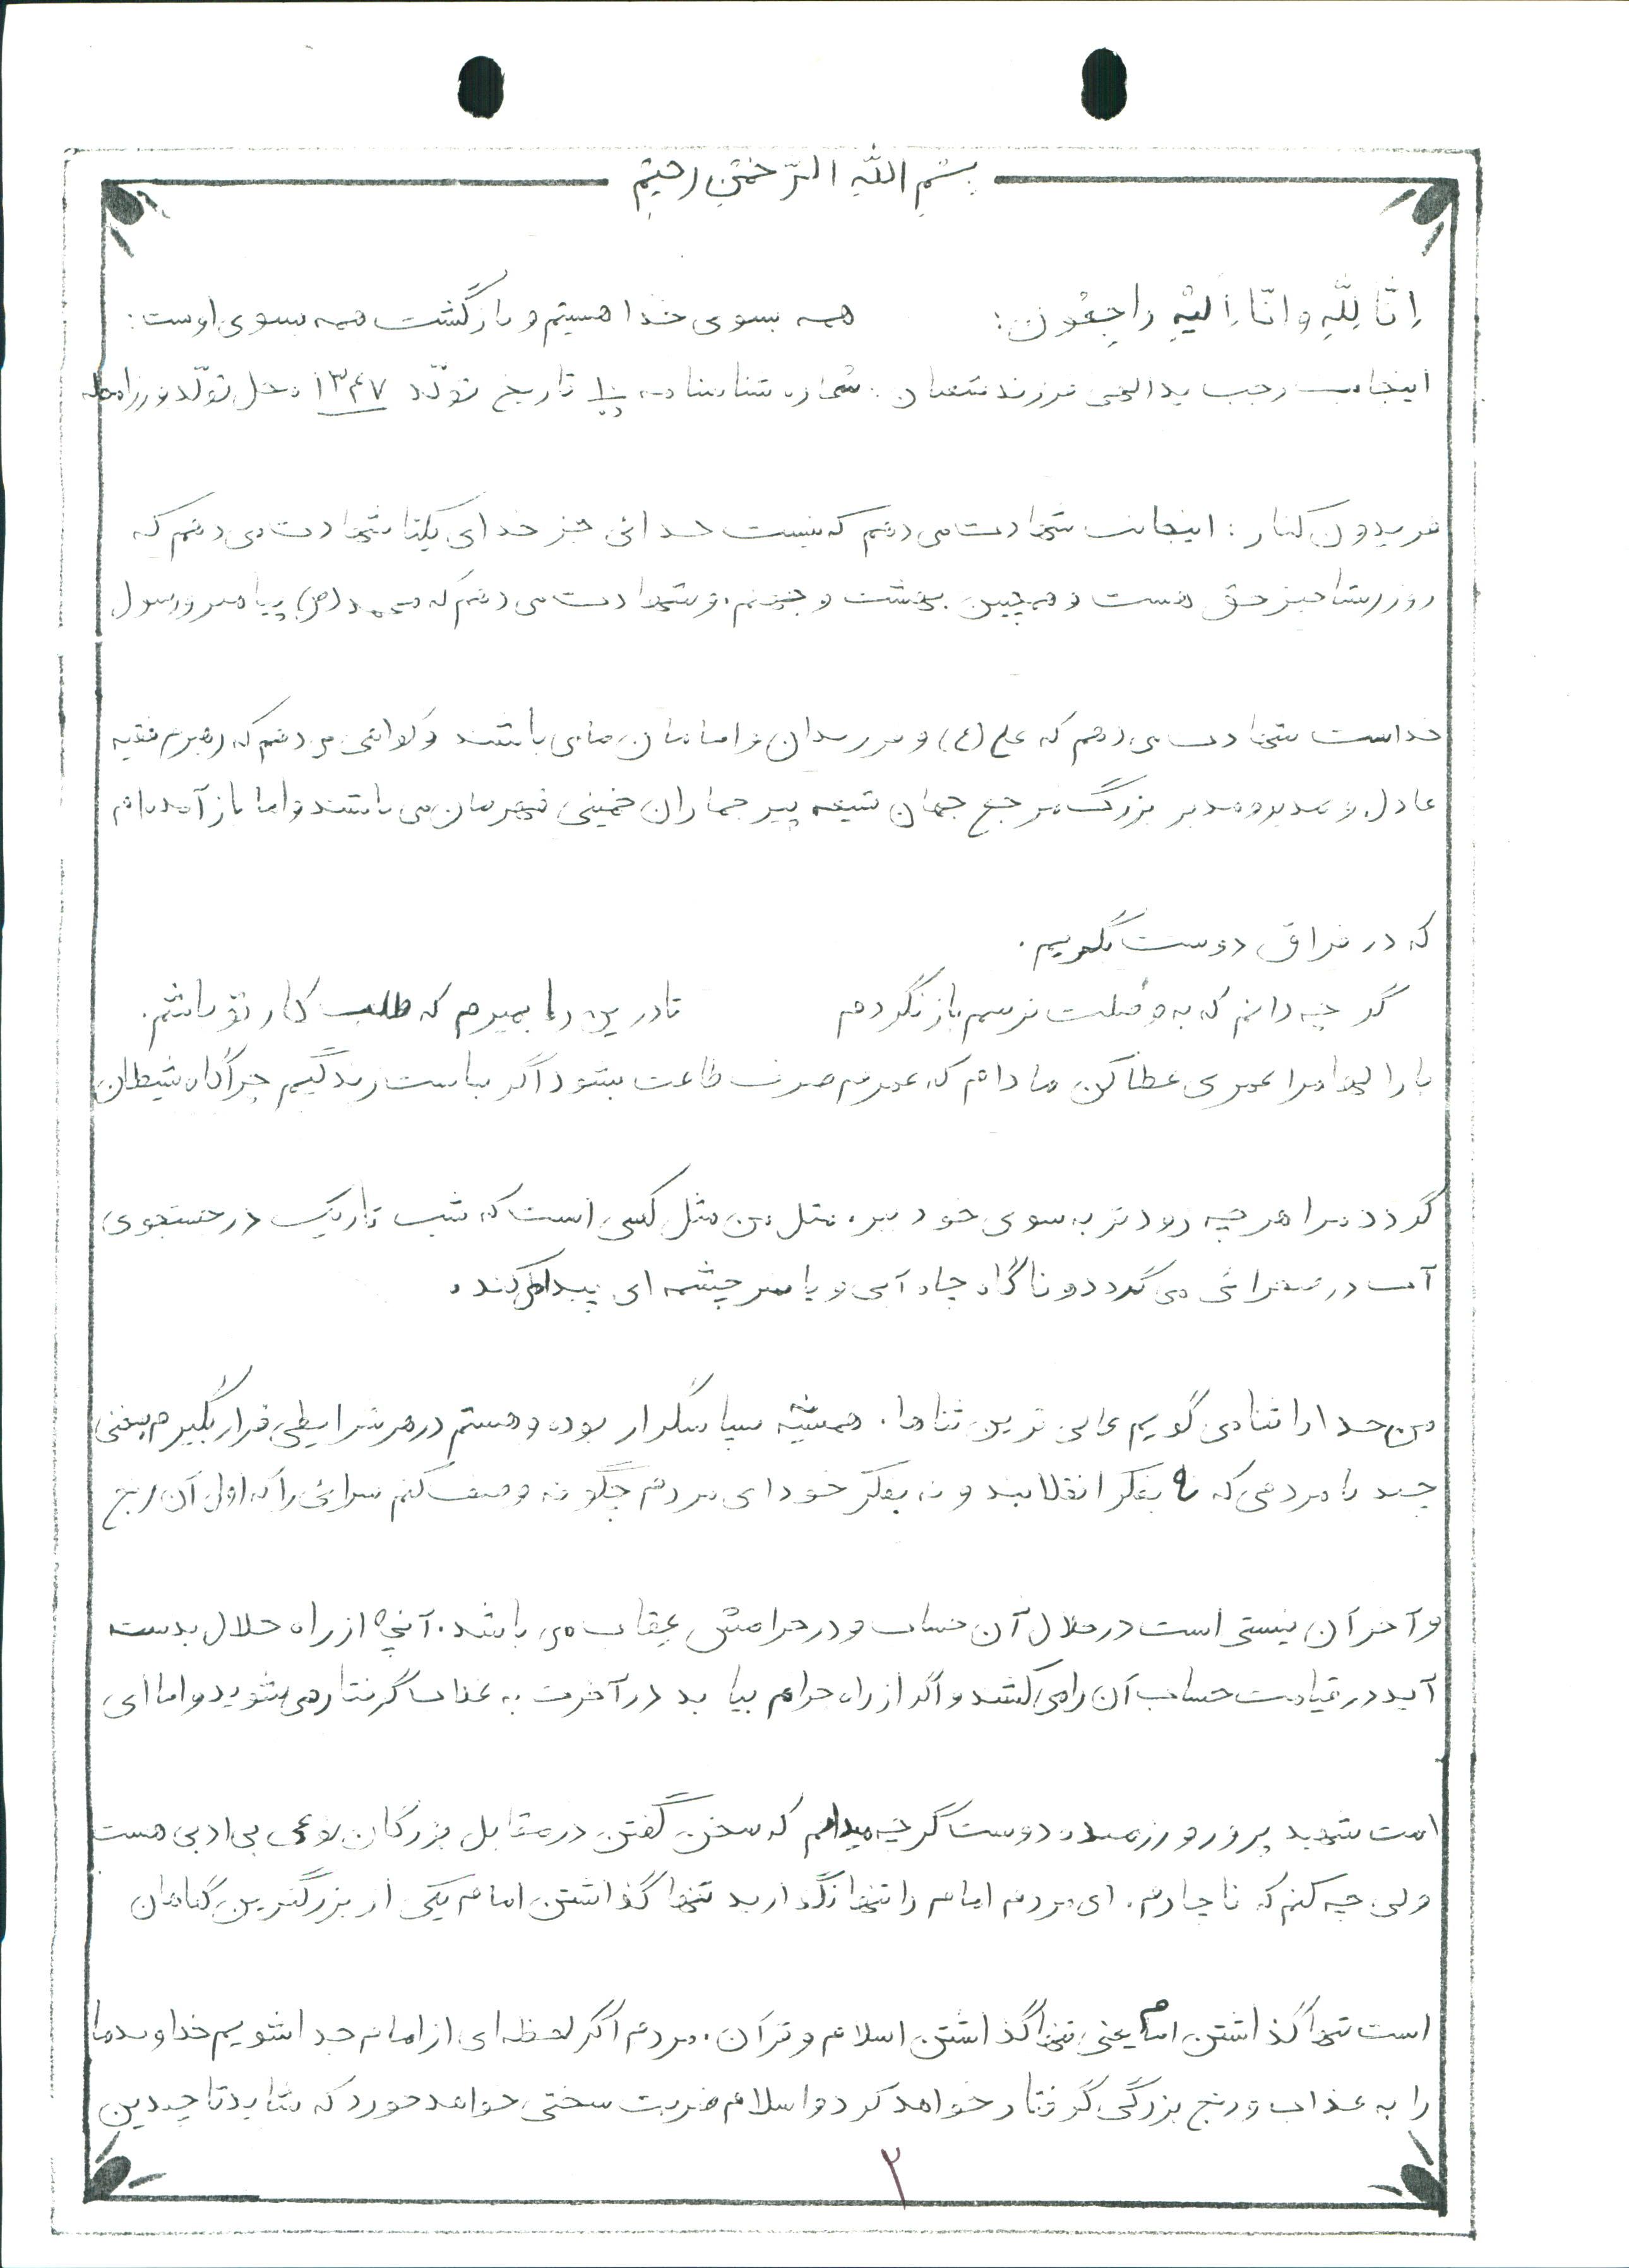 بِسْمِ اللّهِ الرَّحْمٰنِ رحیِم
اِنّا لِلّهِ وانّا اِلَیْهِ راجِعُون: همه بسوی خدا هستیم و بازگشت همه بسوی اوست:
اینجانب رجب یدالهی فرزند شعبان. شماره شناسنامه تاریخ تولّد ۱۳۴۷ محل تولّد
فریدون کنار: اینجانب شهادت می دهم که نیست خدائی جز خدای یکتا شهادت می دهم که
روز رستاخیز حق هست و همچنین بهشت و جهنم. و شهادت می دهم که محمد (ص) پیامبر و رسول
خداست شهادت می دهم که علی (ع) و فرزندان و امامان ما می باشند و گواهی می دهم که رهبرم فقیه
عادل و مدیر و مدبر بزرگ مرجع جهان شیعه پیر جماران خمینی قهرمان می باشند و اما باز آمده ام
که در فراق دوست بگریم.
گر چه دانم که به وصلت نرسم باز نگردم تا در ین راه بمیرم که طلب کار تو باشم.
بارالها مرا عمری عطا کن مادام که عمرم صرف طاعت بشود اگر بناست زندگیم چراگاه شیطان
گردد مرا هر چه زودتر به سوی خود ببر. مثل من مثل کسی است که شب تاریک در جستجوی
آب در صحرائی می گردد و ناگاه چاه آبی و یا سر چشمه ای پیدا می کند.
من خدا را ثنا می گویم عالی ترین ثناها. همیشه سپاسگزار بوده و هستم در هر شرایطی قرار بگیرم سخنی
چند با مردمی که نه بفکر انقلابند و نه بفکر خود ای مردم چگونه وصف کنم سرائی را که اول آن رنج
و آخر آن نیستی است در حلال آن حساب و در حرامش عِقاب می باشد. آنچه از راه حلال بدست
آید در قیامت حساب آن را می کشند و اگر از راه حرام بیابد در آخرت به عذاب گرفتار می شوید و اما ای
امت شهید پرور و رزمنده دوست گر چه میدانم که سخن گفتن در مقابل بزرگان نوعی بی ادبی هست
ولی چه کنم که ناچارم. ای مردم امام را تنها نگذارید تنها گذاشتن امام یکی از بزرگترین گناهان
است تنها گذاشتن امام یعنی تنها گذاشتن اسلام و قرآن. مردم اگر لحظه ای از امام جدا شویم خداوند ما
را به عذاب و رنج بزرگی گرفتار خواهد کرد و اسلام ضربت سختی خواهد خورد که شاید تا چندین
۲